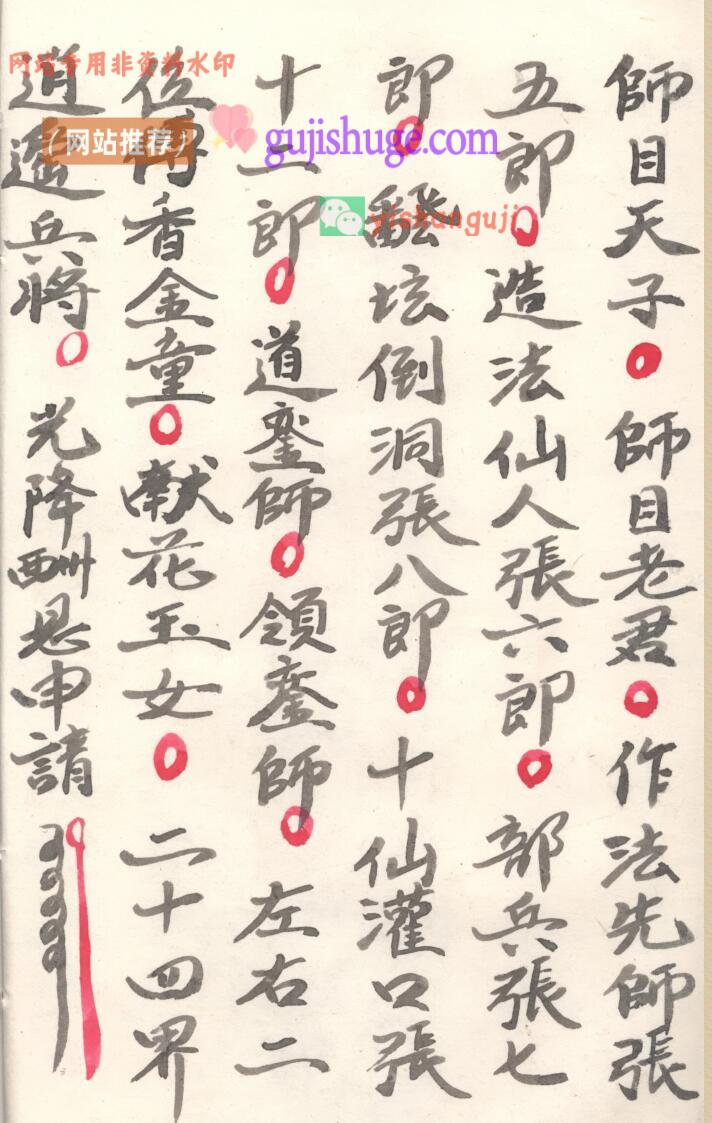 師目天子師目老君作法先師張
五郎造法仙人張六郎部兵張七
郎翻坛倒洞張八郎十仙灌口張
十二郎道銮師領銮師左右二
位香金童献花玉女二十四界
逍遥兵将光降酬恩申請
网站专用非资料水印
(网站推荐)
gujishuge.com
yishanguji